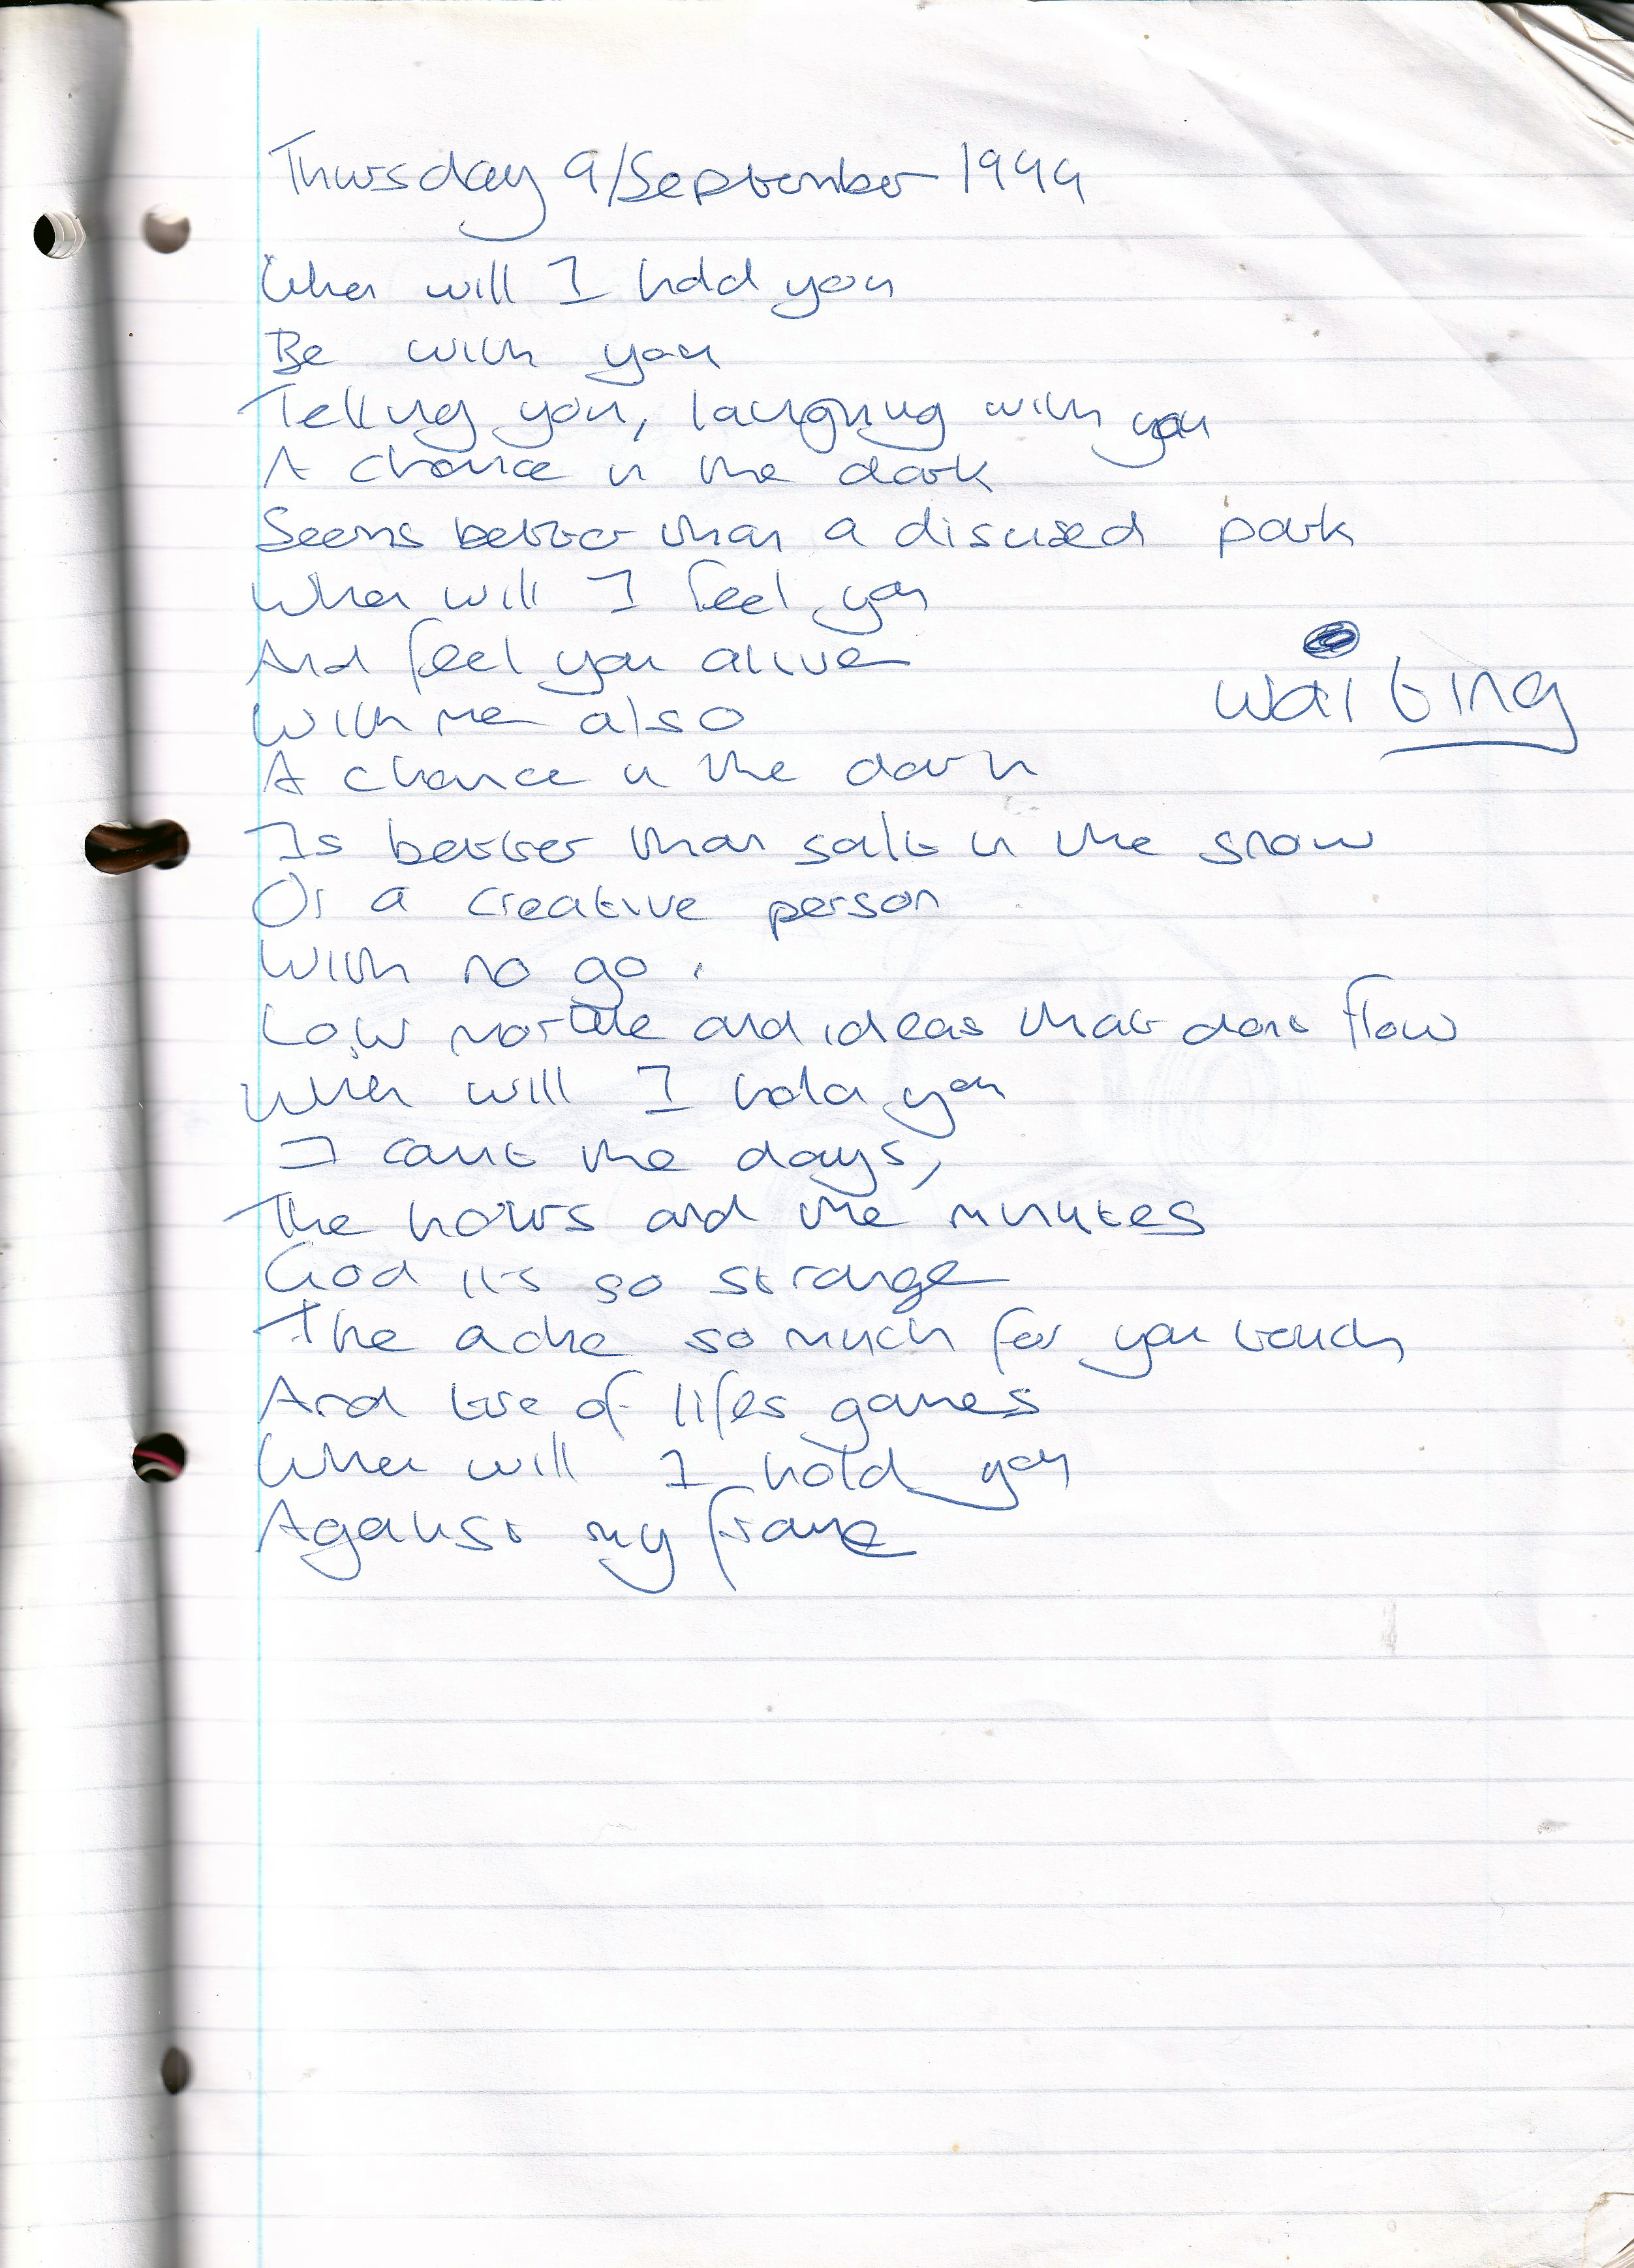 Thursday 9/September 1999
When will I hold you
Be with you
Telling you, laughing with you
A chance in the dark
Seems better than a disused park
When will I feel you
And feel you alive
waiting
With me also
A chance in the dark
Is better than salt in the snow
Or a creative person
With no go.
Low and ideas that dont flow
When will I hold you
I count the days,
The hours and the minutes
God its so strange
The ache so much for you touch
And tire of lifes games
When will I hold you
Against my frame